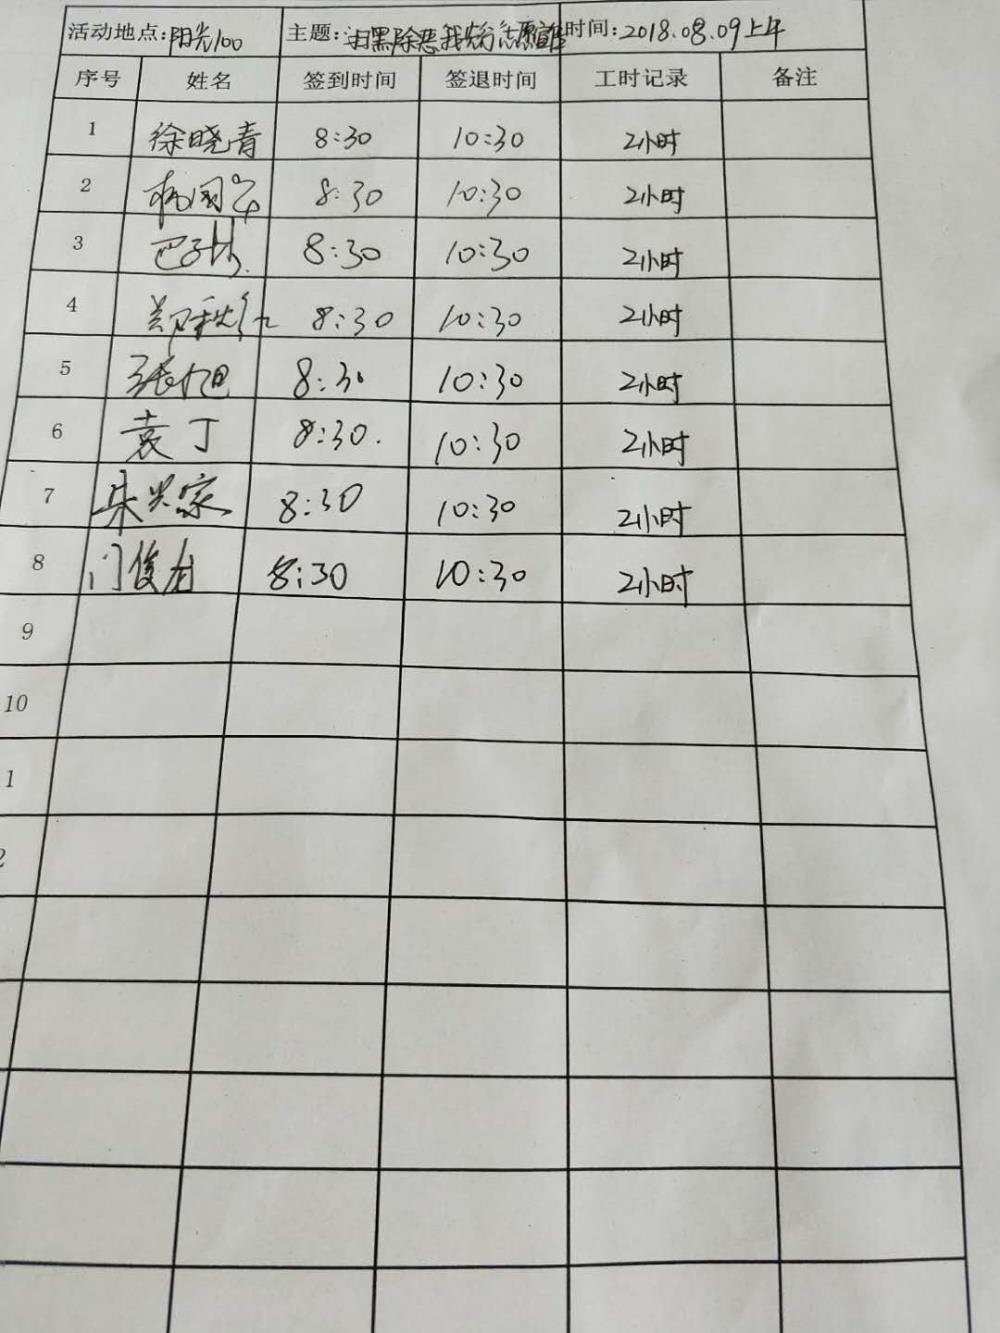 活动地点:阳光100 主题:扫黑除恶我先行志愿宣 时间:2018.08.09上午
序号 姓名 签到时间 签退时间 工时记录 备注
1 徐晓青 8:30 10:30 2小时
2 8:30 10:30 2小时
3 8:30 10:30 2小时
4 8:30 10:30 2小时
5 张旭 8:30 10:30 2小时
6 袁丁 8:30. 10:30 2小时
7 朱兴家 8:30 10:30 2小时
8 门俊 8:30 10:30 2小时
9
10
1
2